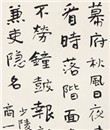 幕府秋風日夜
看時落階面
不勞鐘鼓報
兼吏隱名
少陵